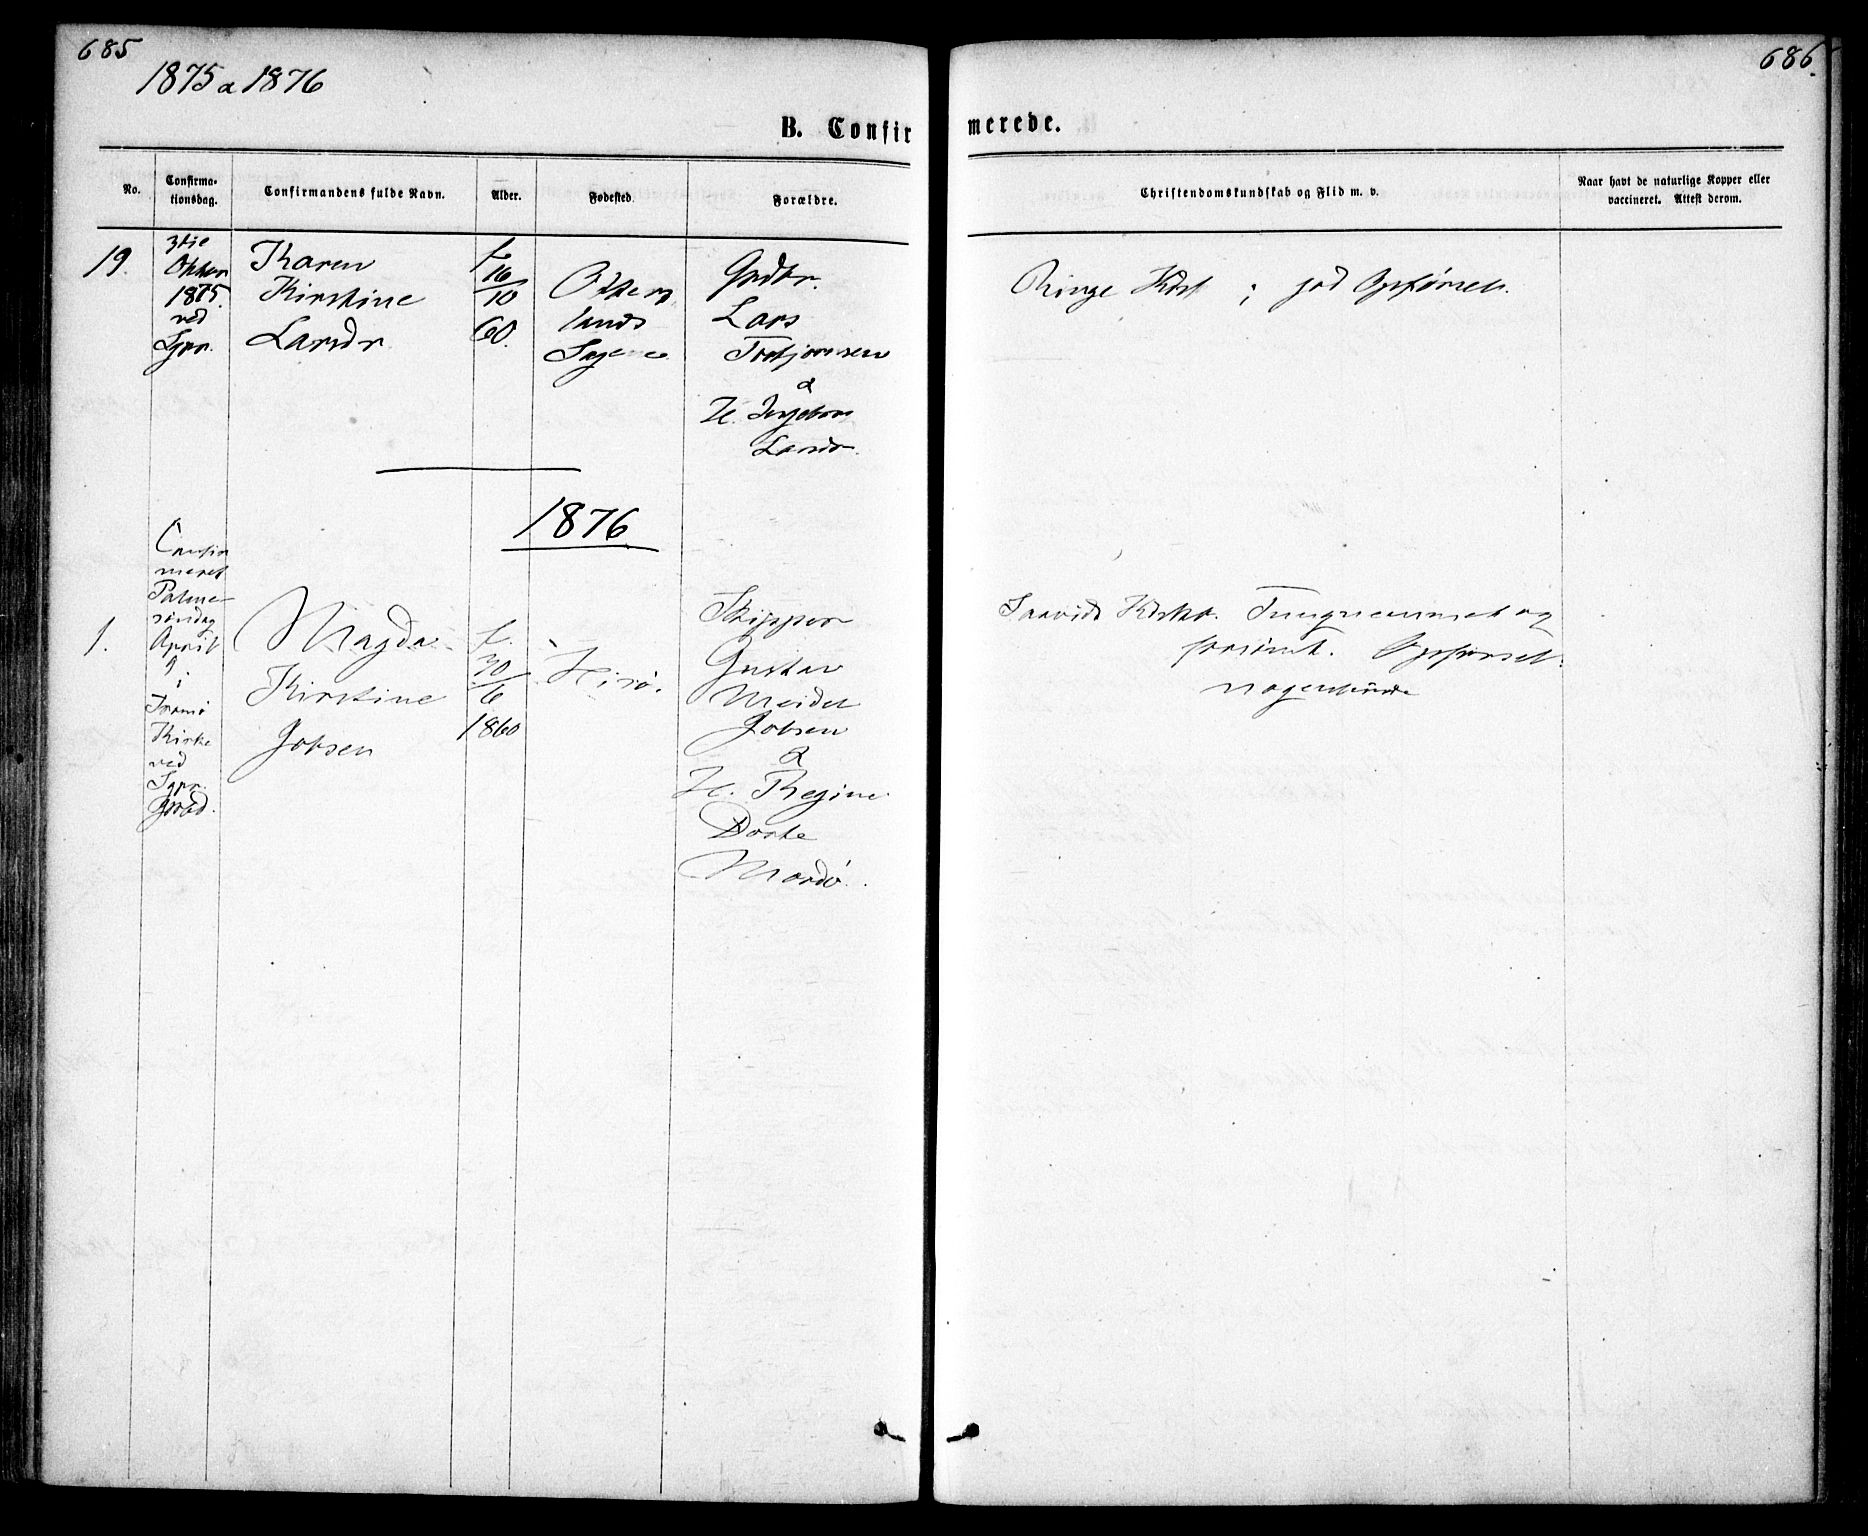 685
686.
1875 a 1876
B. Confirmerede.
No.
Confirma-
tionsdag.
Confirmandens fulde Navn.
Alder.
Fødested.
Forældre.
Christendomskundskab og Flid m. v.
Naar havt de naturlige Kopper eller
vaccineret. Attest derom.
19.
3die
Oktbr
1875.
ved
Sgpr.
Karen
Kirstine
Larsdr
f.
16/10
60.
Grdbr.
Lars
&
H. Ingeborg
Larsdr.
Ringe Kdsk ; god Opførsel.
1876
1.
Confir
meret
Palme
søndag
April
9
i
Tromø
Kirke
ved
Sgpr.
Magda
Kirstine
Jobsen
f.
30/6
1860
Hisø.
Skipper
Gustav
Meidel
Jobsen
&
H. Regine
Dorte
Mardø.
Opførsel